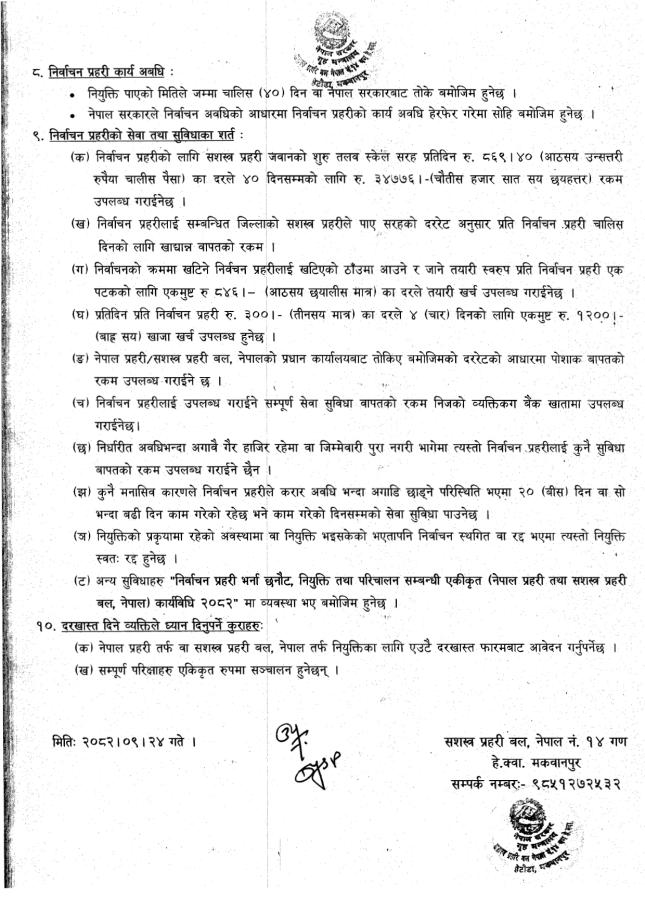 नेपाल सरकार
गृह मन्त्रालय
हेटौंडा, मकवानपुर
८. निर्वाचन प्रहरी कार्य अवधि :
• नियुक्ति पाएको मितिले जम्मा चालिस (४०) दिन वा नेपाल सरकारबाट तोके बमोजिम हुनेछ ।
• नेपाल सरकारले निर्वाचन अवधिको आधारमा निर्वाचन प्रहरीको कार्य अवधि हेरफेर गरेमा सोहि बमोजिम हुनेछ ।
९. निर्वाचन प्रहरीको सेवा तथा सुविधाका शर्त :
(क) निर्वाचन प्रहरीको लागि सशस्त्र प्रहरी जवानको शुरु तलब स्केल सरह प्रतिदिन रु. ८६९।४० (आठसय उन्सत्तरी
रुपैया चालीस पैसा) का दरले ४० दिनसम्मको लागि रु. ३४७७६।-(चौतीस हजार सात सय छयहत्तर) रकम
उपलब्ध गराईनेछ ।
(ख) निर्वाचन प्रहरीलाई सम्बन्धित जिल्लाको सशस्त्र प्रहरीले पाए सरहको दररेट अनुसार प्रति निर्वाचन प्रहरी चालिस
दिनको लागि खाद्यान्न वापतको रकम ।
(ग) निर्वाचनको क्रममा खटिने निर्वचन प्रहरीलाई खटिएको ठाँउमा आउने र जाने तयारी स्वरुप प्रति निर्वाचन प्रहरी एक
पटकको लागि एकमुष्ट रु ८४६।– (आठसय छयालीस मात्र) का दरले तयारी खर्च उपलब्ध गराईनेछ ।
(घ) प्रतिदिन प्रति निर्वाचन प्रहरी रु. ३००।- (तीनसय मात्र) का दरले ४ (चार) दिनको लागि एकमुष्ट रु. १२००।-
(बाह्र सय) खाजा खर्च उपलब्ध हुनेछ ।
(ङ) नेपाल प्रहरी/सशस्त्र प्रहरी बल, नेपालको प्रधान कार्यालयबाट तोकिए बमोजिमको दररेटको आधारमा पोशाक बापतको
रकम उपलब्ध गराईने छ ।
(च) निर्वाचन प्रहरीलाई उपलब्ध गराईने सम्पूर्ण सेवा सुविधा वापतको रकम निजको व्यक्तिकग बैंक खातामा उपलब्ध
गराईनेछ।
(छ) निर्धारीत अवधिभन्दा अगावै गैर हाजिर रहेमा वा जिम्मेवारी पुरा नगरी भागेमा त्यस्तो निर्वाचन प्रहरीलाई कुनै सुविधा
बापतको रकम उपलब्ध गराईने छैन ।
(झ) कुनै मनासिव कारणले निर्वाचन प्रहरीले करार अवधि भन्दा अगाडि छाड्ने परिस्थिति भएमा २० (बीस) दिन वा सो
भन्दा बढी दिन काम गरेको रहेछ भने काम गरेको दिनसम्मको सेवा सुविधा पाउनेछ ।
(ञ) नियुक्तिको प्रकृयामा रहेको अवस्थामा वा नियुक्ति भइसकेको भएतापनि निर्वाचन स्थगित वा रद्द भएमा त्यस्तो नियुक्ति
स्वतः रद्द हुनेछ ।
(ट) अन्य सुविधाहरु "निर्वाचन प्रहरी भर्ना छनौट, नियुक्ति तथा परिचालन सम्बन्धी एकीकृत (नेपाल प्रहरी तथा सशस्त्र प्रहरी
बल, नेपाल) कार्यविधि २०८२" मा व्यवस्था भए बमोजिम हुनेछ ।
१०. दरखास्त दिने व्यक्तिले ध्यान दिनुपर्ने कुराहरुः
(क) नेपाल प्रहरी तर्फ वा सशस्त्र प्रहरी बल, नेपाल तर्फ नियुक्तिका लागि एउटै दरखास्त फारमबाट आवेदन गर्नुपर्नेछ ।
(ख) सम्पूर्ण परिक्षाहरु एकिकृत रुपमा सञ्चालन हुनेछन् ।
मितिः २०८२।०९।२४ गते ।
सशस्त्र प्रहरी बल, नेपाल नं. १४ गण
हे.क्वा. मकवानपुर
सम्पर्क नम्बरः- ९८५१२७२५३२
नेपाल सरकार
गृह मन्त्रालय
हेटौंडा, मकवानपुर